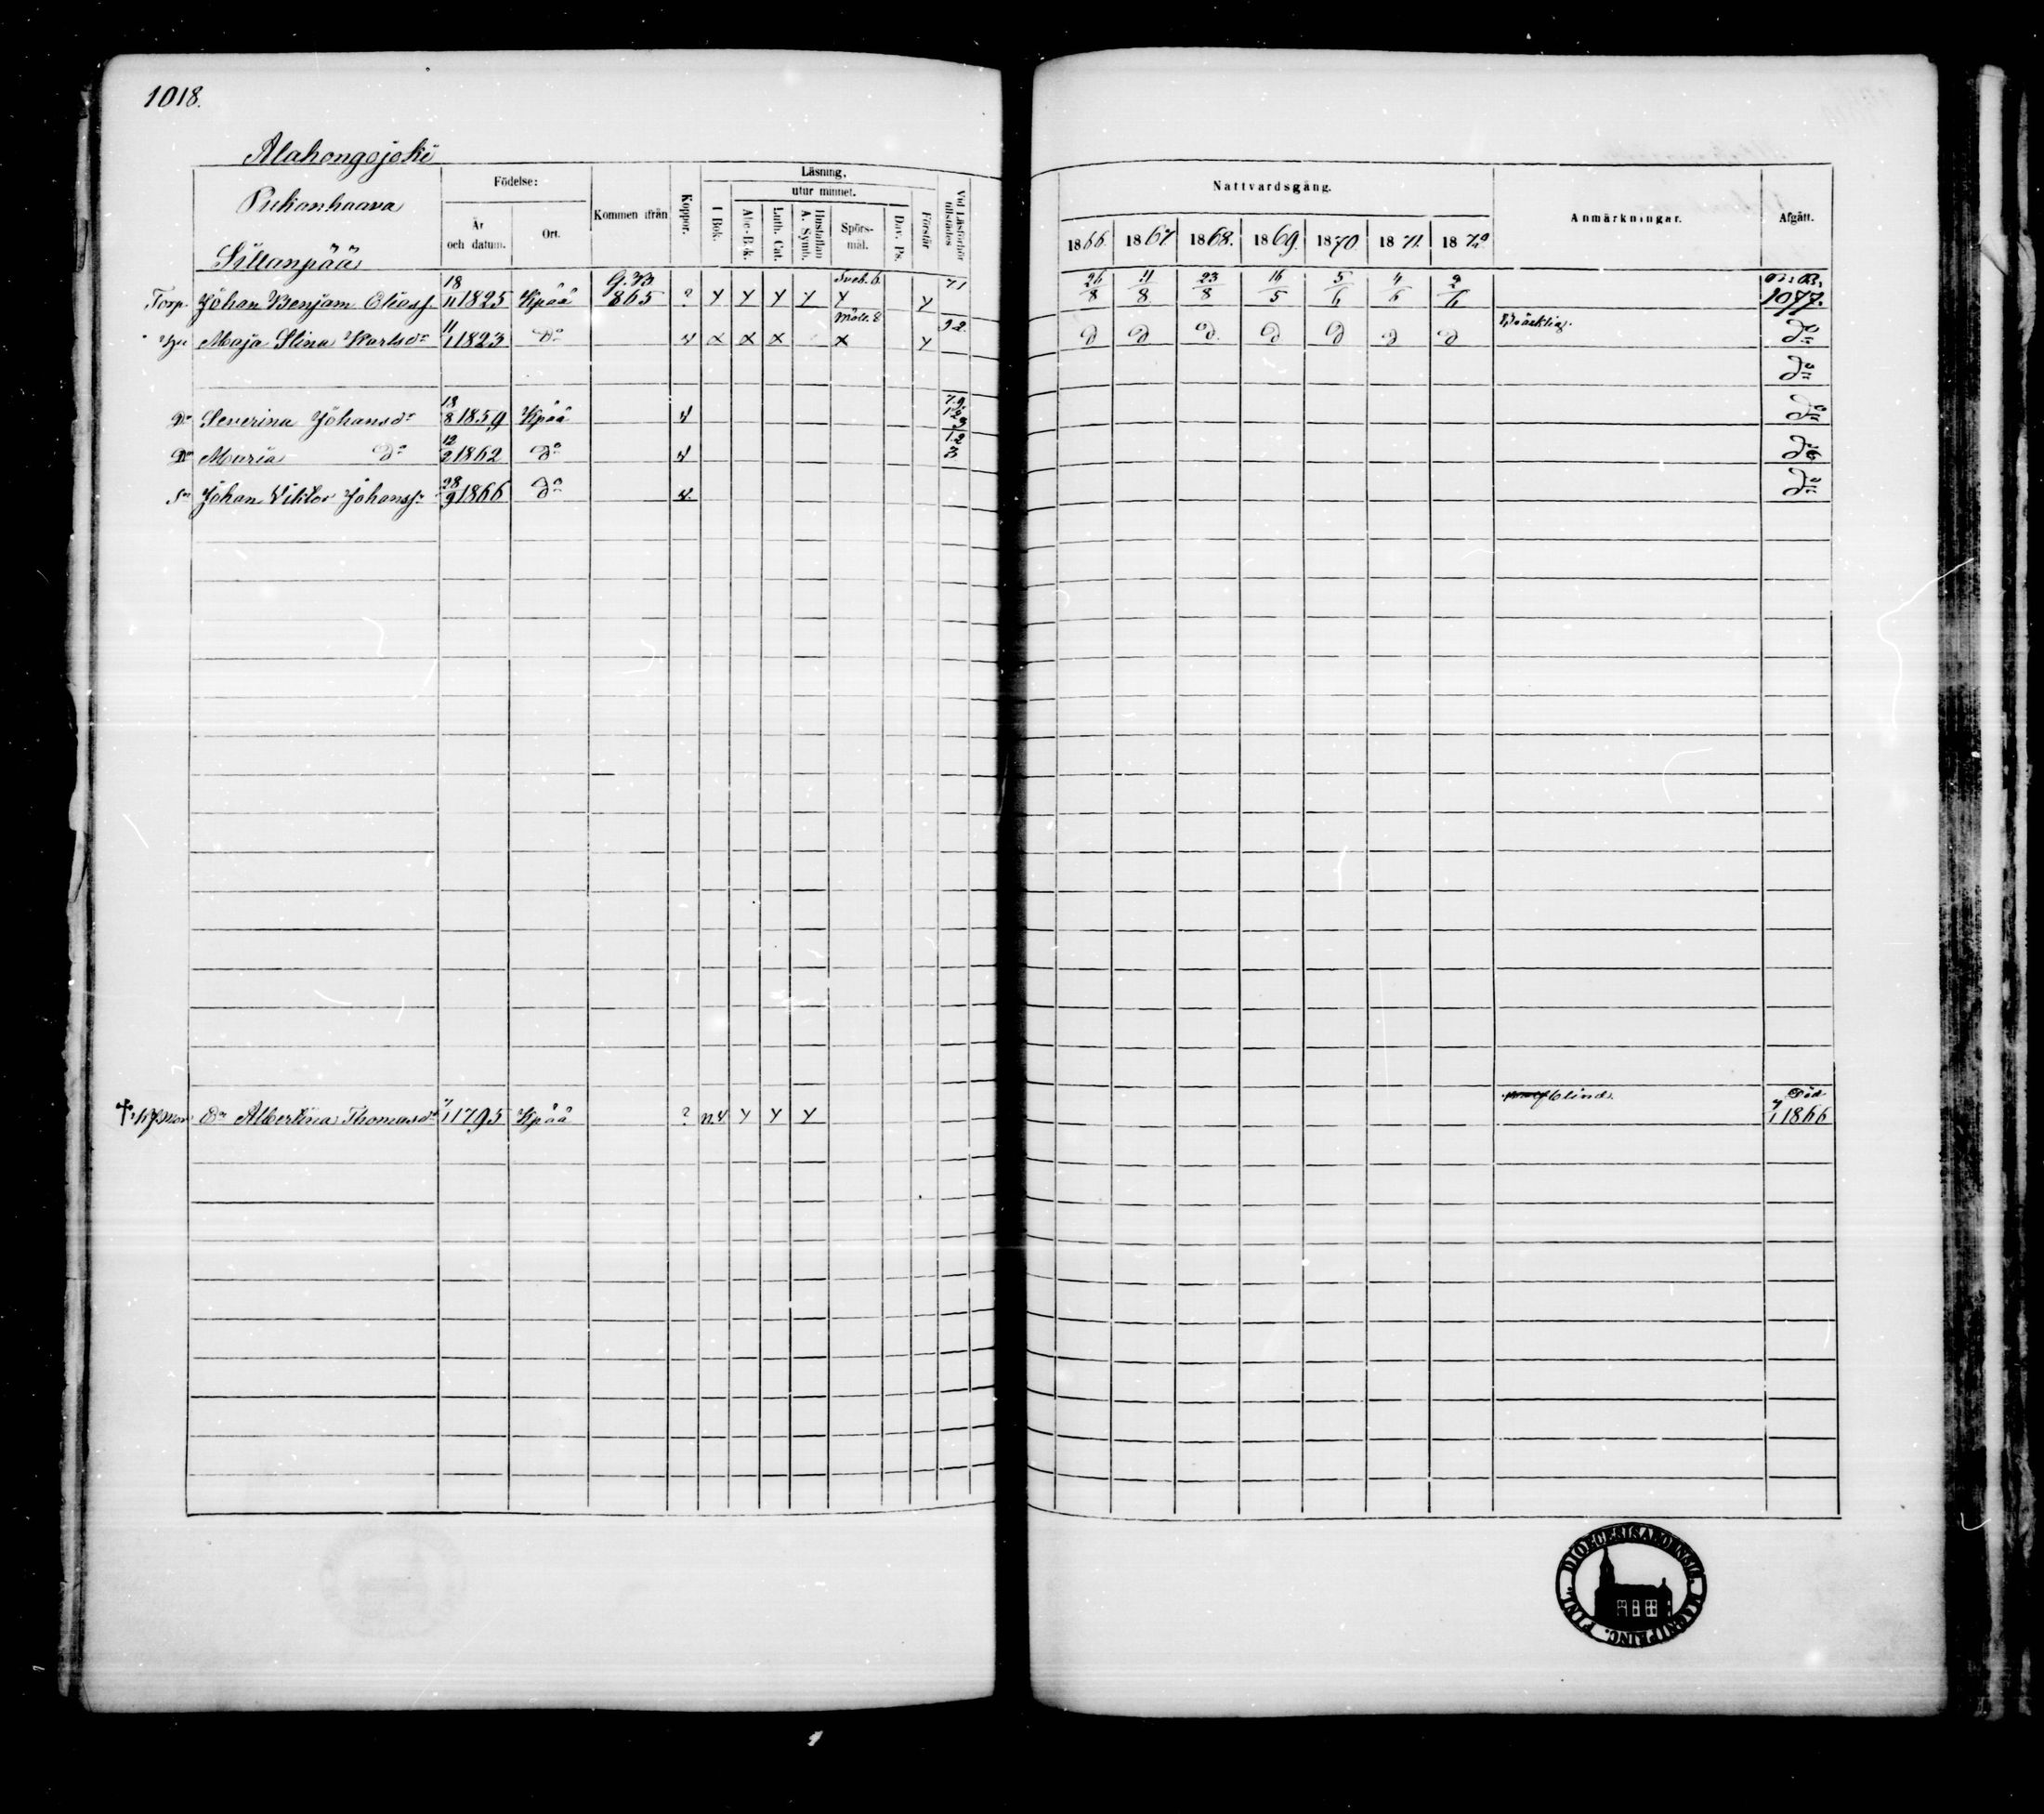 1018.
Alahongojoki
Pukanhaava
Sillanpää
Födelse:
År och datum.
Ort.
Kommen ifrån
Koppor.
Läsning.
I Bok.
utur minnet.
Abc-Bok.
Luth. Cat.
Hustaflan A. Symb.
Spörs-mål.
Dav. Ps.
Förstår
Vid Läsförhör tillstädes
Nattvardsgång.
1866. 1867 1868. 1869. 1870 1871. 1872
Anmärkningar.
Afgått.
Torp. Johan Benjam Eliass. 18/11 1825 Kpää G.B. 865 ? y y y y Sveb. 6 y y 71 26/8 11/8 23/8 16/5 5/6 4/6 2/6 N.B. 1077.
Hu Maja Stina Karlsdr 11/1 1823 Do v x x x Mått. 8 x y 92 d d d d d d d Bräcklig. Do
Do
Dr Severina Johansdr 18/8 1859 Kpää v Do
Dr Maria do 12/2 1862 Do v 12/3 Do
Sn Johan Viktor Johanss. 28/9 1866 Do v. Do
† Albertina Thomasdr 7/1 1795 Kpää ? n.v y y y blind. Död 7/1 1866
DIOECESIS ABOENSIS. MAGNI PRINC. FINL.